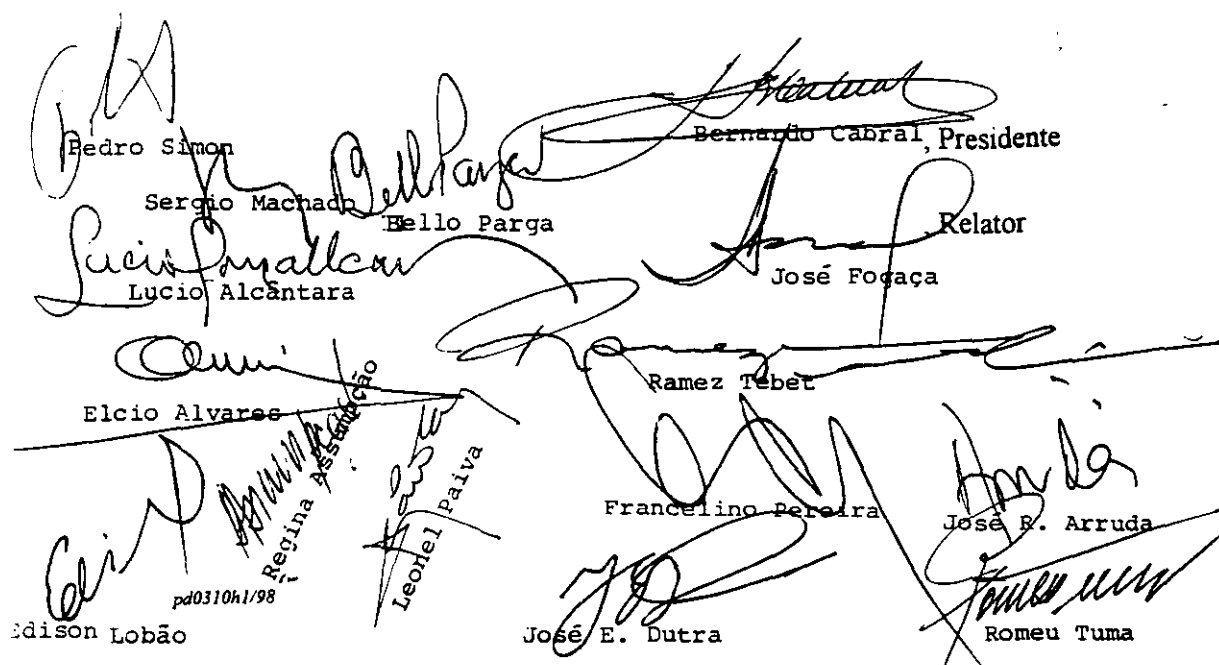 Pedro Simon
Bernardo Cabral, Presidente
Sergio Machado
Bello Parga
Relator
Lucio Alcântara
José Fogaça
Ramez Tebet
Elcio Alvares
Regina Assumpção
Leonel Paiva
Francelino Pereira
José R. Arruda
pd0310h1/98
Edison Lobão
José E. Dutra
Romeu Tuma